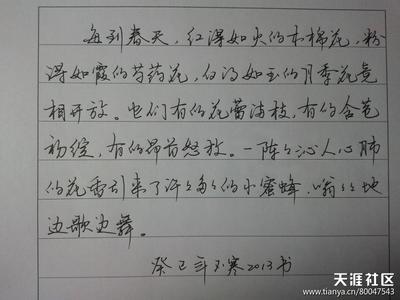 每到春天，红得如火的木棉花，粉
得如霞的芍药花，白得如玉的月季花竞
相开放。它们有的花蕾满枝，有的含苞
初绽，有的昂首怒放。一阵々沁人心肺
的花香引来了许々多々的小蜜蜂，嗡々地
边歌边舞。
癸巳年玉寒2013书
天涯社区
www.tianya.cn/80047543